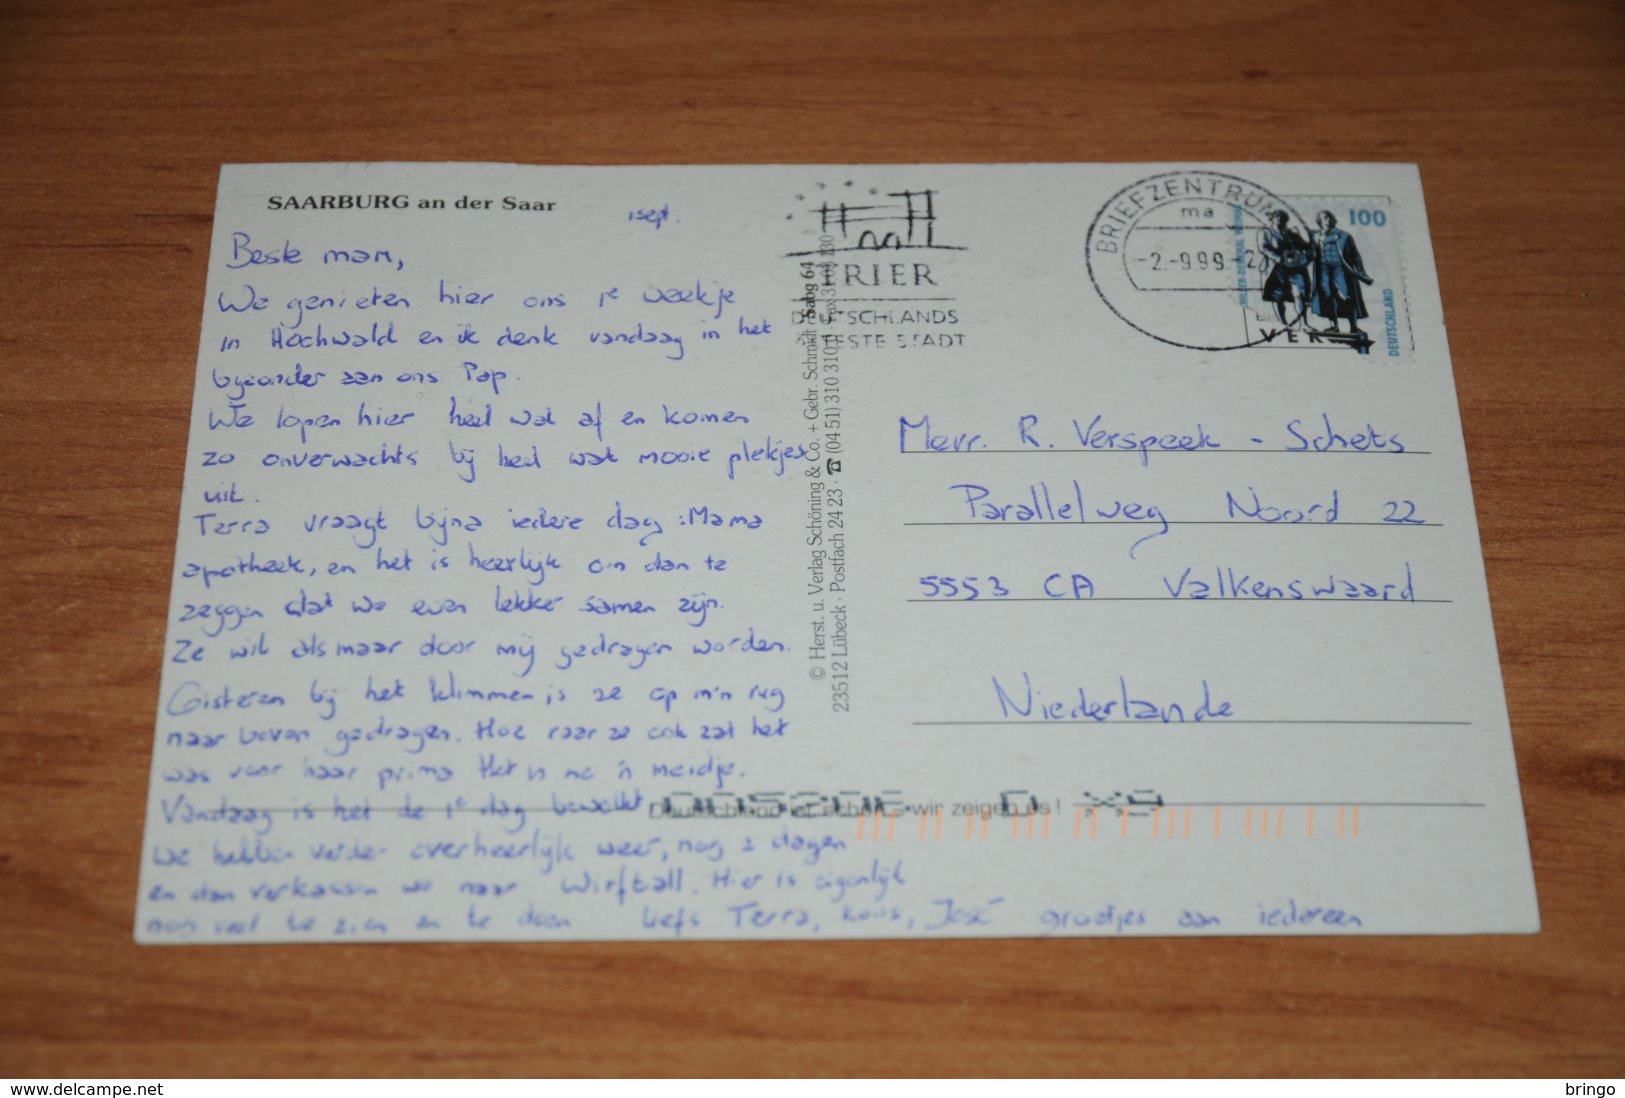 SAARBURG an der Saar
1 sept.
Beste mam,
We genieten hier ons 1e weekje
in Hochwald en ik denk vandaag in het
byzonder aan ons Pap.
We lopen hier heel wat af en komen
zo onverwachts bij heel wat mooie plekjes
uit.
Terra vraagt bijna iedere dag : Mama
apotheek, en het is heerlijk om dan te
zeggen dat we even lekker samen zijn.
Ze wil alsmaar door mij gedragen worden.
Gisteren bij het klimmen is ze op m'n rug
naar boven gedragen. Hoe raar ze ook zat het
was voor haar prima Het is me 'n meidje.
Vandaag is het de 1e dag bewolkt
We hebben verder overheerlijk weer, nog 2 dagen
en dan verkassen we naar Wirfttall. Hier is eigenlijk
nog veel te zien en te doen Liefs Terra, Koos, José groetjes aan iedereen
© Herst. u. Verlag Schöning & Co. + Gebr. Schmidt · Sabg 64
23512 Lübeck · Postfach 24 23 · ☎ (04 51) 310 310
TRIER
DEUTSCHLANDS
ÄLTESTE STADT
BRIEFZENTRUM
ma
-2.-9.99-2
100
DEUTSCHLAND
Mevr. R. Verspeek - Schets
Parallelweg Noord 22
5553 CA Valkenswaard
Niederlande
Deutschland ist schön - wir zeigen es!
www.delcampe.net
bringo